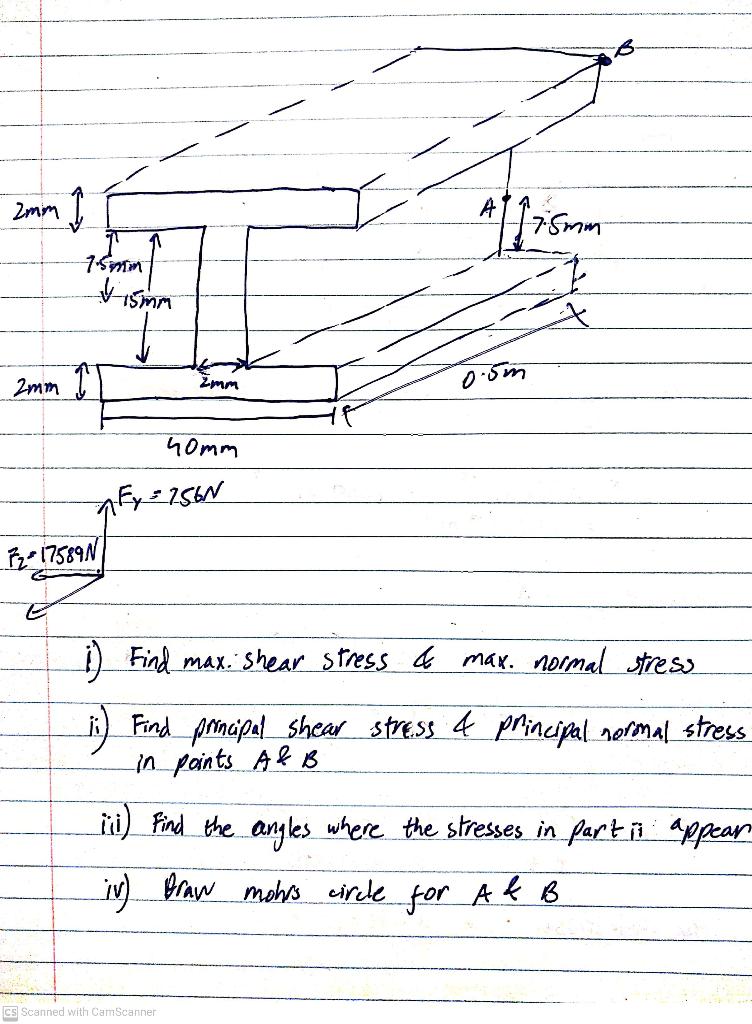 B
2mm
A
7.5mm
7.5mm
15mm
2mm
2mm
0.5m
40mm
Fy = 756N
Fz = 17589N
i) Find max. shear stress & max. normal stress
ii) Find principal shear stress & principal normal stress
in points A & B
iii) Find the angles where the stresses in part ii appear
iv) Draw mohrs circle for A & B
CS Scanned with CamScanner